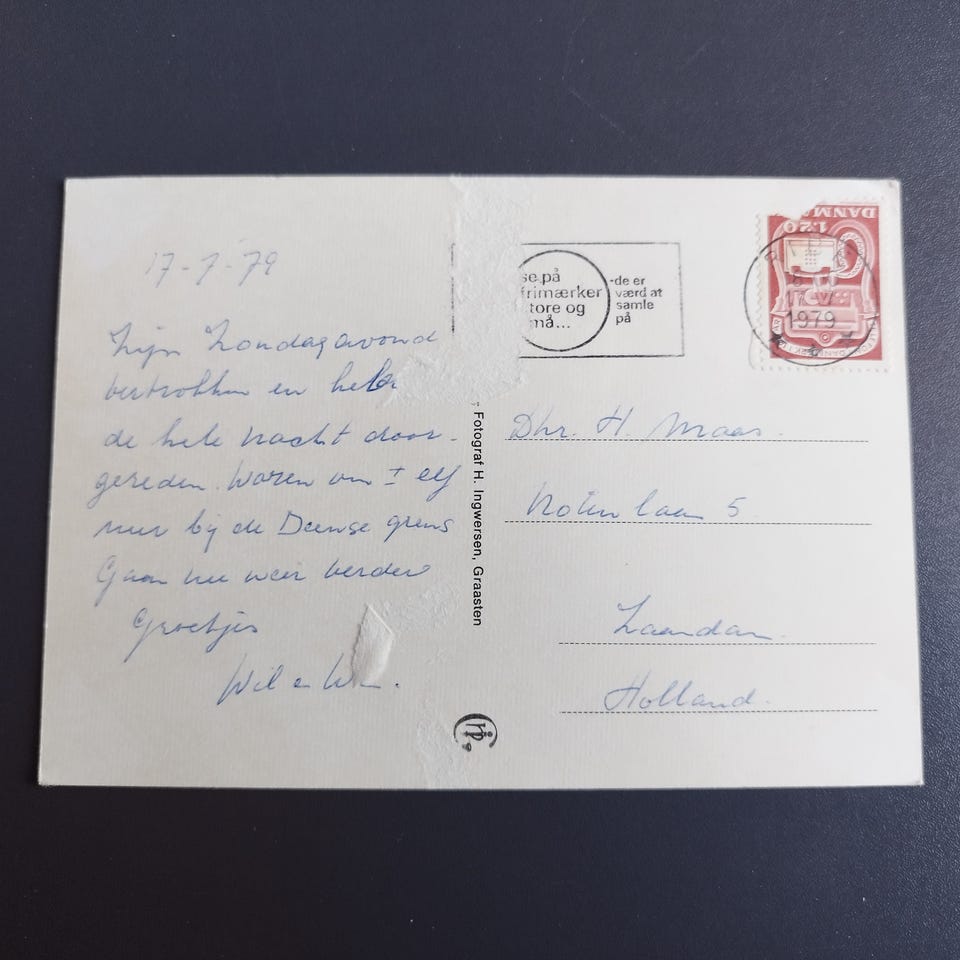 17-7-'79
Zijn Zondagavond
vertrokken en hebben
de hele nacht door-
gereden. Waren om ± elf
uur bij de Deense grens
Gaan nu weer verder
Groetjes
Wil en
se på
frimærker
store og
små...
-de er
værd at
samle
på
DANMARK
1.20
17. 
1979
Fotograf H. Ingwersen, Graasten
Dhr. H. Maas.
Notenlaan 5.
Zaandam.
Holland.